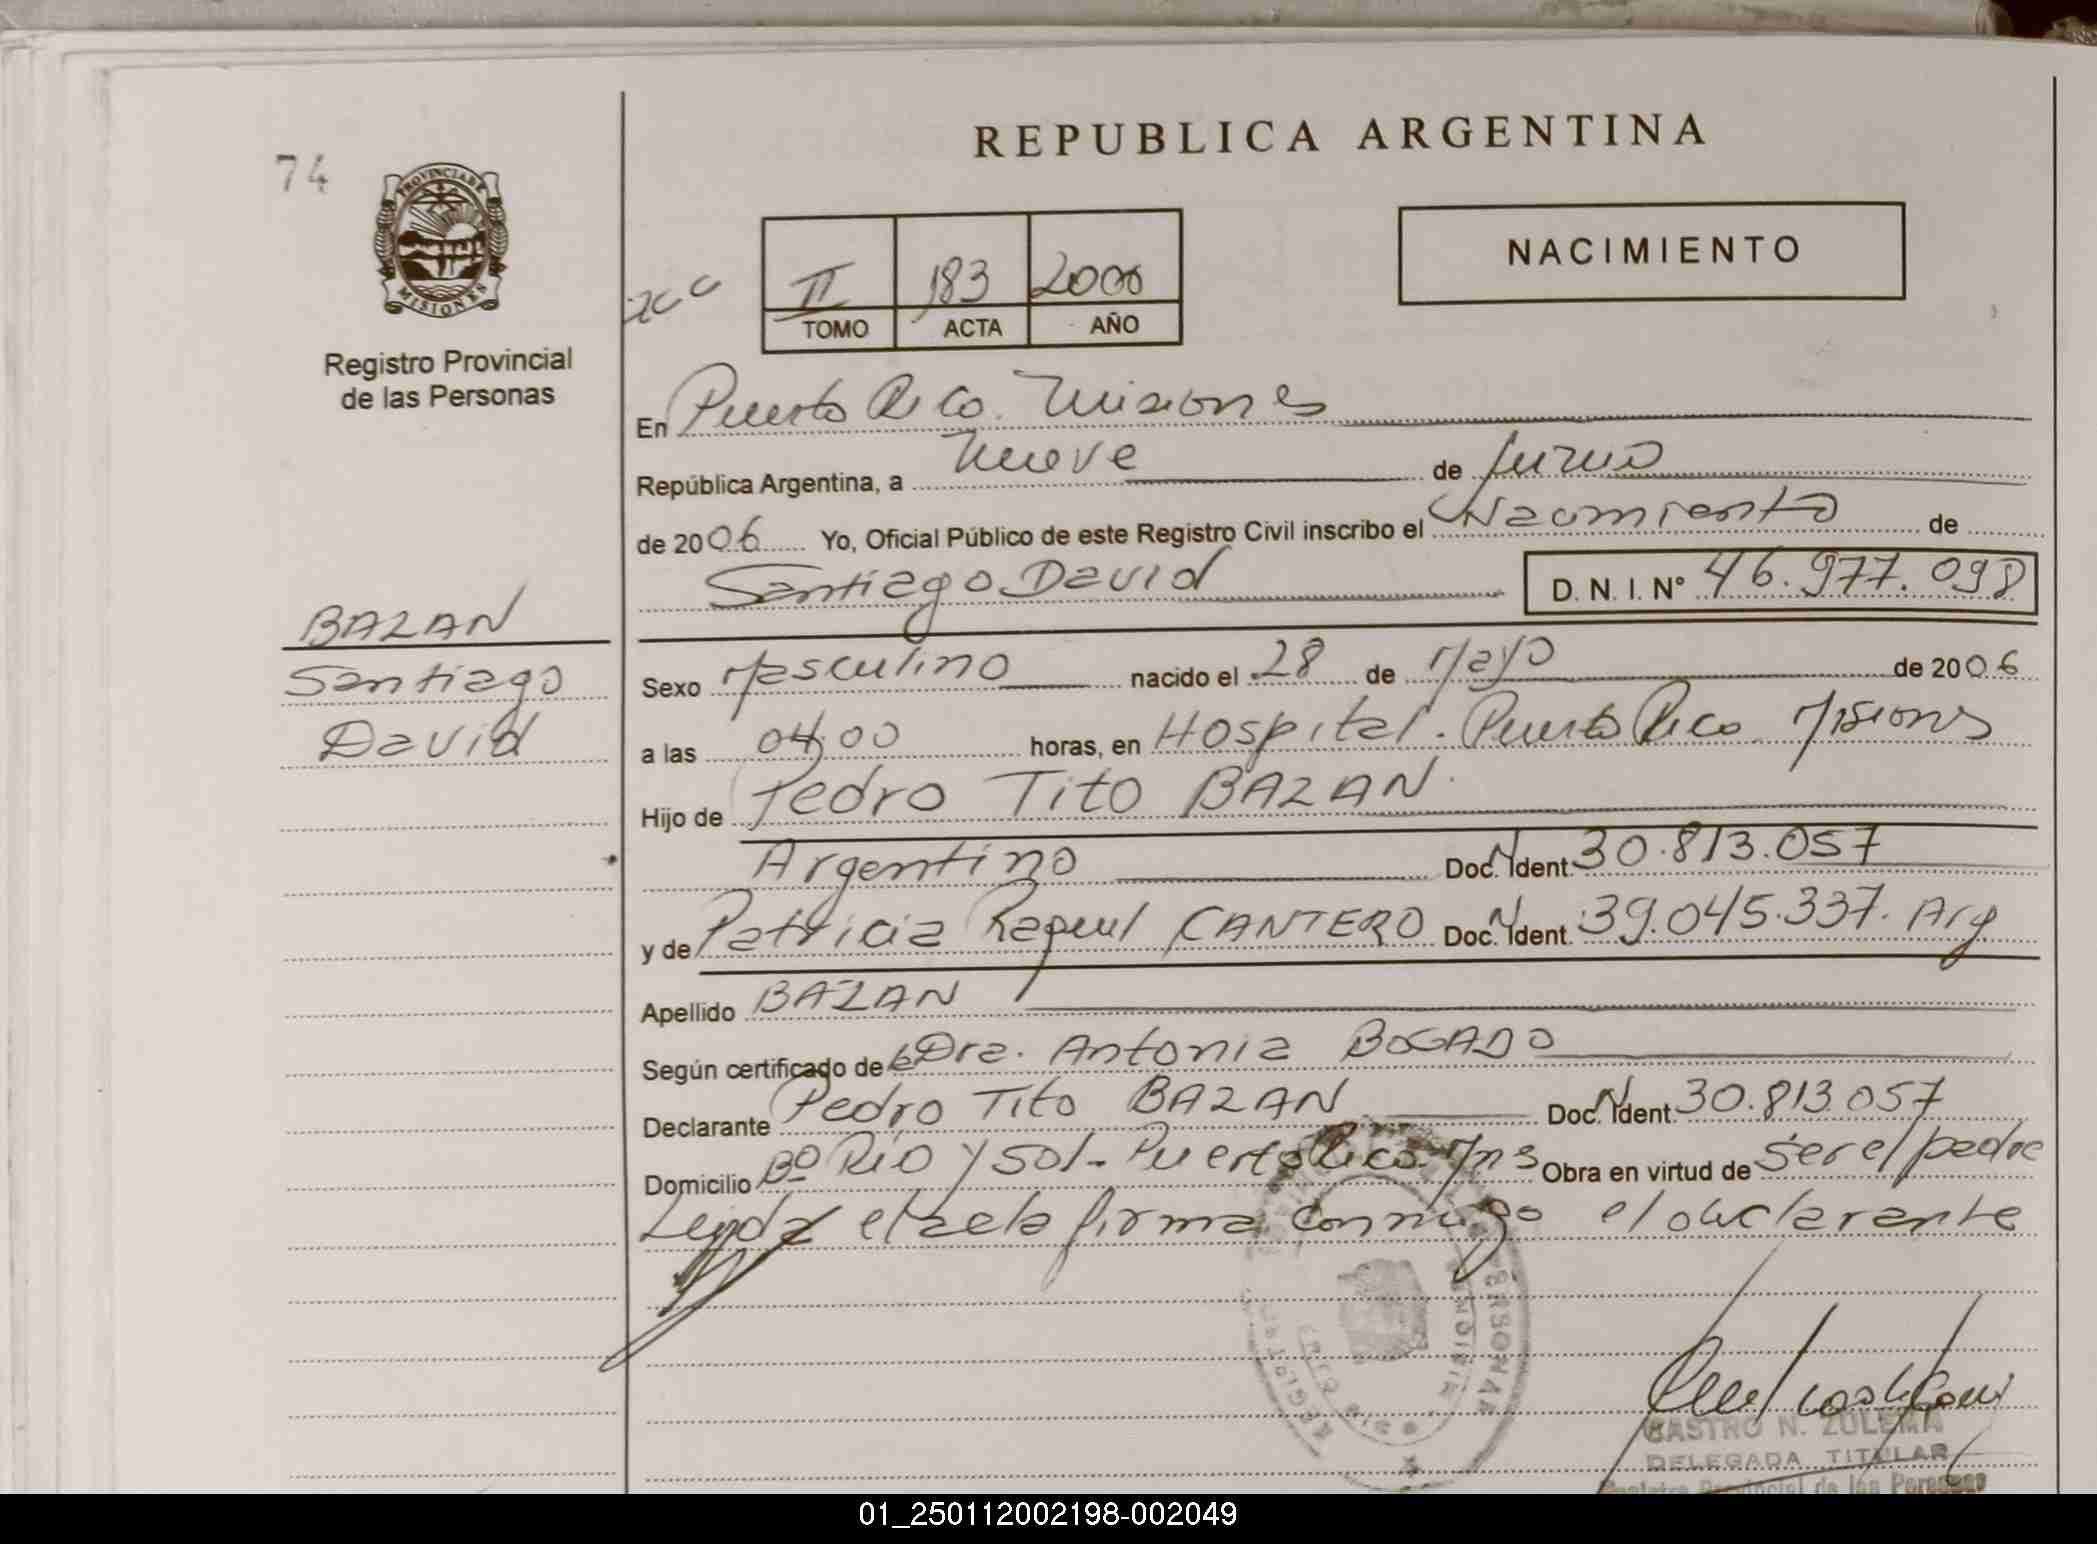 74
PROVINCIA DE
MISIONES
Registro Provincial
de las Personas
REPUBLICA ARGENTINA
NACIMIENTO
II 183 2006
TOMO ACTA AÑO
En Puerto Rico. Misiones
República Argentina, a Nueve de Junio
de 2006 Yo, Oficial Público de este Registro Civil inscribo el Nacimiento de
Santiago David D. N. I. N° 46.977.098
BAZAN
Santiago
David
Sexo Masculino nacido el 28 de Mayo de 2006
a las 04,00 horas, en Hospital. Puerto Rico Misiones
Hijo de Pedro Tito BAZAN
Argentino Doc. N Ident. 30.813.057
y de Patricia Raquel CANTERO Doc. N Ident. 39.045.337. Arg
Apellido BAZAN
Según certificado de la Dra. Antonia BOGADO
Declarante Pedro Tito BAZAN Doc. N Ident. 30.813.057
Domicilio Bº Rio y Sol - Puerto Rico. Mns Obra en virtud de ser el padre
Leida el acta firma conmigo el declarante
CASTRO N. ZULEMA
DELEGADA TITULAR
Registro Provincial de las Personas
01_250112002198-002049